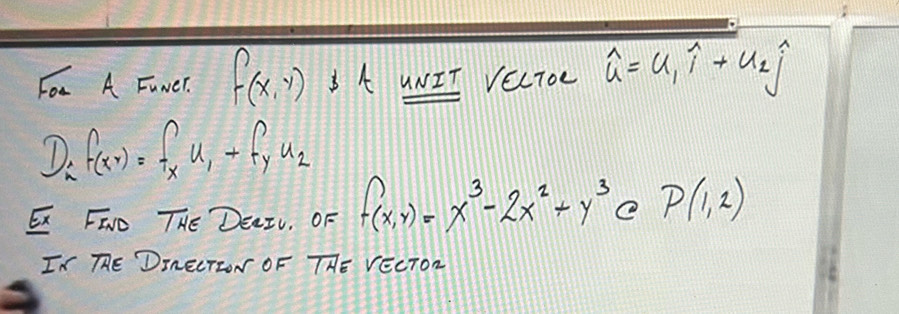 FOR A FUNCT. f(x,y) & A UNIT VECTOR û = u₁ î + u₂ ĵ
D_û f(x,y) = f_x u₁ + f_y u₂
EX FIND THE DERIV. OF f(x,y) = x³ - 2x² + y³ @ P(1,2)
IN THE DIRECTION OF THE VECTOR